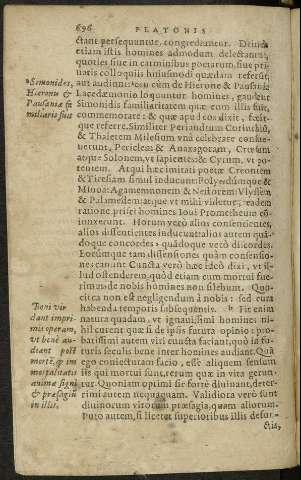 696 PLATONIS
ctant persequuntur, congrediantur. Deinde
etiam istis homines admodum delectantur,
quoties siue in carminibus poetarum, siue pri
uatis colloquiis huiusmodi quædam referũt,
aut audiunt: ceu cum de Hierone & Pausania
Lacedæmonio loquuntur homines, gaudent
Simonidis familiaritatem quæ cum illis fuit,
commemorare: & quæ apud eos dixit, fecit-
que referre. Similiter Periandrum Corinthiũ,
& Thaletem Milesium vnà celebrare consue-
uerunt, Periclem & Anaxagoram, Crœsum
atque Solonem, vt sapientes: & Cyrum, vt po-
tentem. Atqui hæc imitati poetæ Creontem
& Tiresiam simul inducunt: Polyeidum que &
Minoa: Agamemnonem & Nestorem: Vlyssem
& Palamedem: atque vt mihi videtur, eadem
ratione prisci homines Ioui Prometheum cõ-
iunxerunt. Horum verò alios consentientes,
alios dissentientes inducunt: alios autem qui-
doque concordes, quãdoque verò discordes.
Eorumque tam dissensiones quàm consensio-
nes canunt. Cuncta verò hæc ideò dixi, vt il-
lud ostenderem, quòd etiam cum mortui fue-
rimus de nobis homines non silebunt. Quo-
circa non est negligendum à nobis: sed cura
habenda temporis subsequẽtis. Fit enim
natura quadam, vt ignauissimi homines ni-
hil curent quæ sit de ipsis futura opinio: pro-
batissimi autem viri cuncta faciant, quò in fu-
turis seculis bene inter homines audiant. Qua
ego coniecturam facio, esse aliquem sensum
iis qui mortui sunt, rerum quæ in vita gerun-
tur. Quoniam optimi sic fortè diuinant, deter-
rimi autem nequaquam. Validiora verò sunt
diuinorum virorum præsagia, quàm aliorum.
Puto autem, si liceat superioribus illis defun-
ctis,
Simonides,
Hieronu &
Pausaniæ fa
miliaris fuit
Boni vir
dant impri-
mis operam,
vt benè au-
diant post
mortẽ, & im
mortalitatis
animæ signũ
& præsagiũ
in illis.